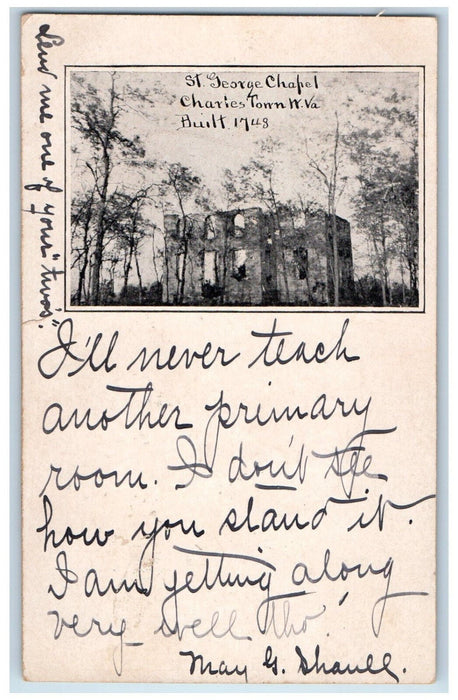 St. George Chapel
Charles Town W.Va
Built 1748
Send me one of your "twos".
I'll never teach
another primary
room. I don't see
how you stand it.
I am getting along
very well tho'.
May G. Shaull.